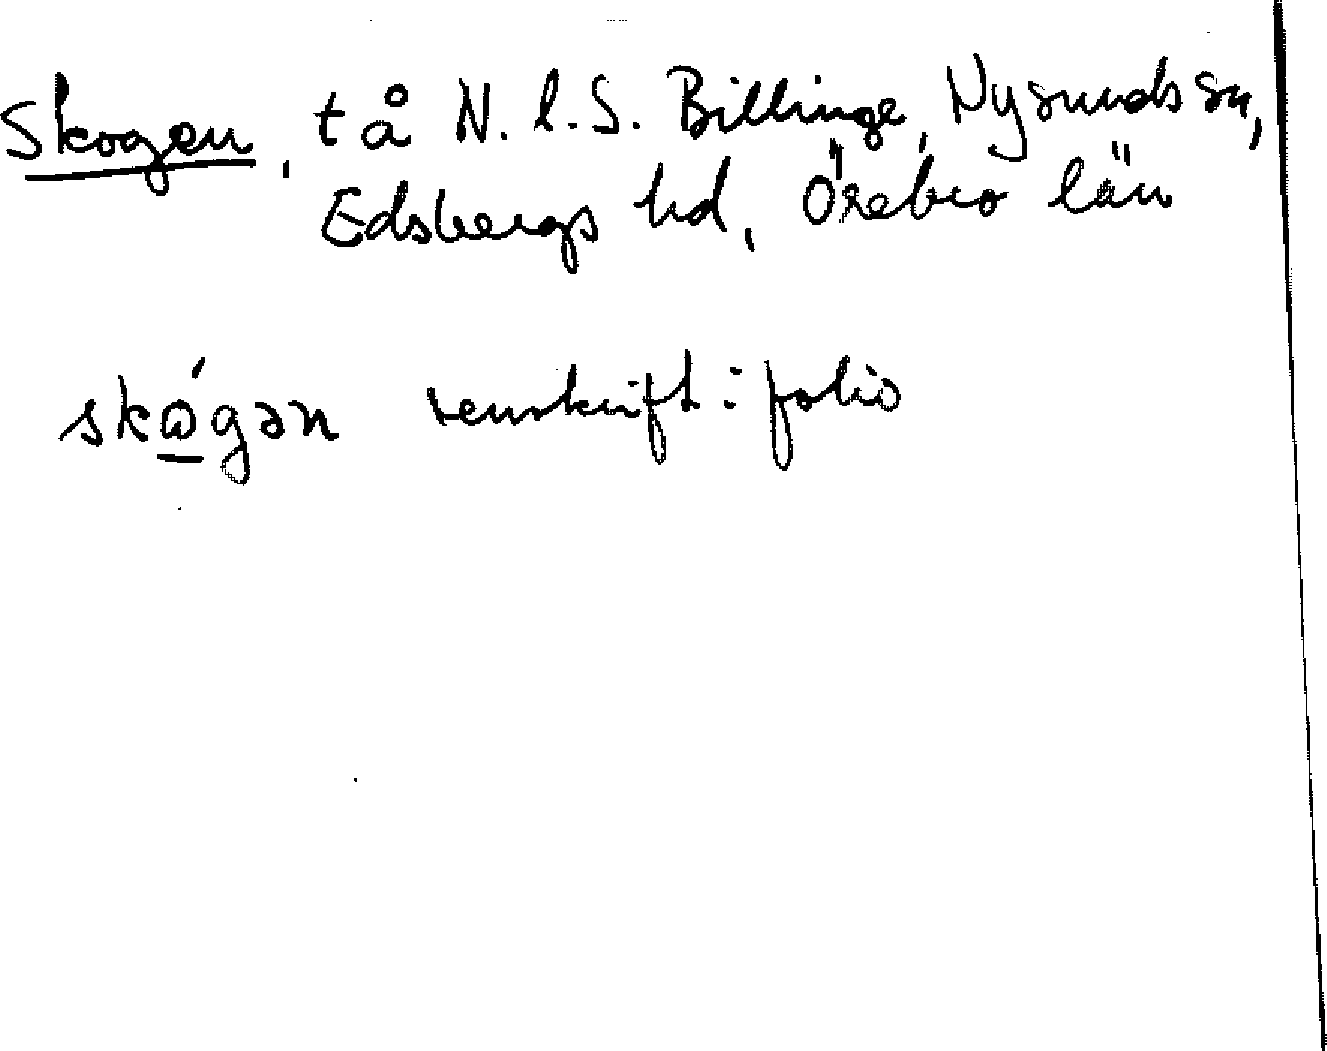 Skogen, t å N. l. S. Billinge, Nysunds sn,
Edsbergs hd, Örebro län
skǫ́gən renskrift: folio